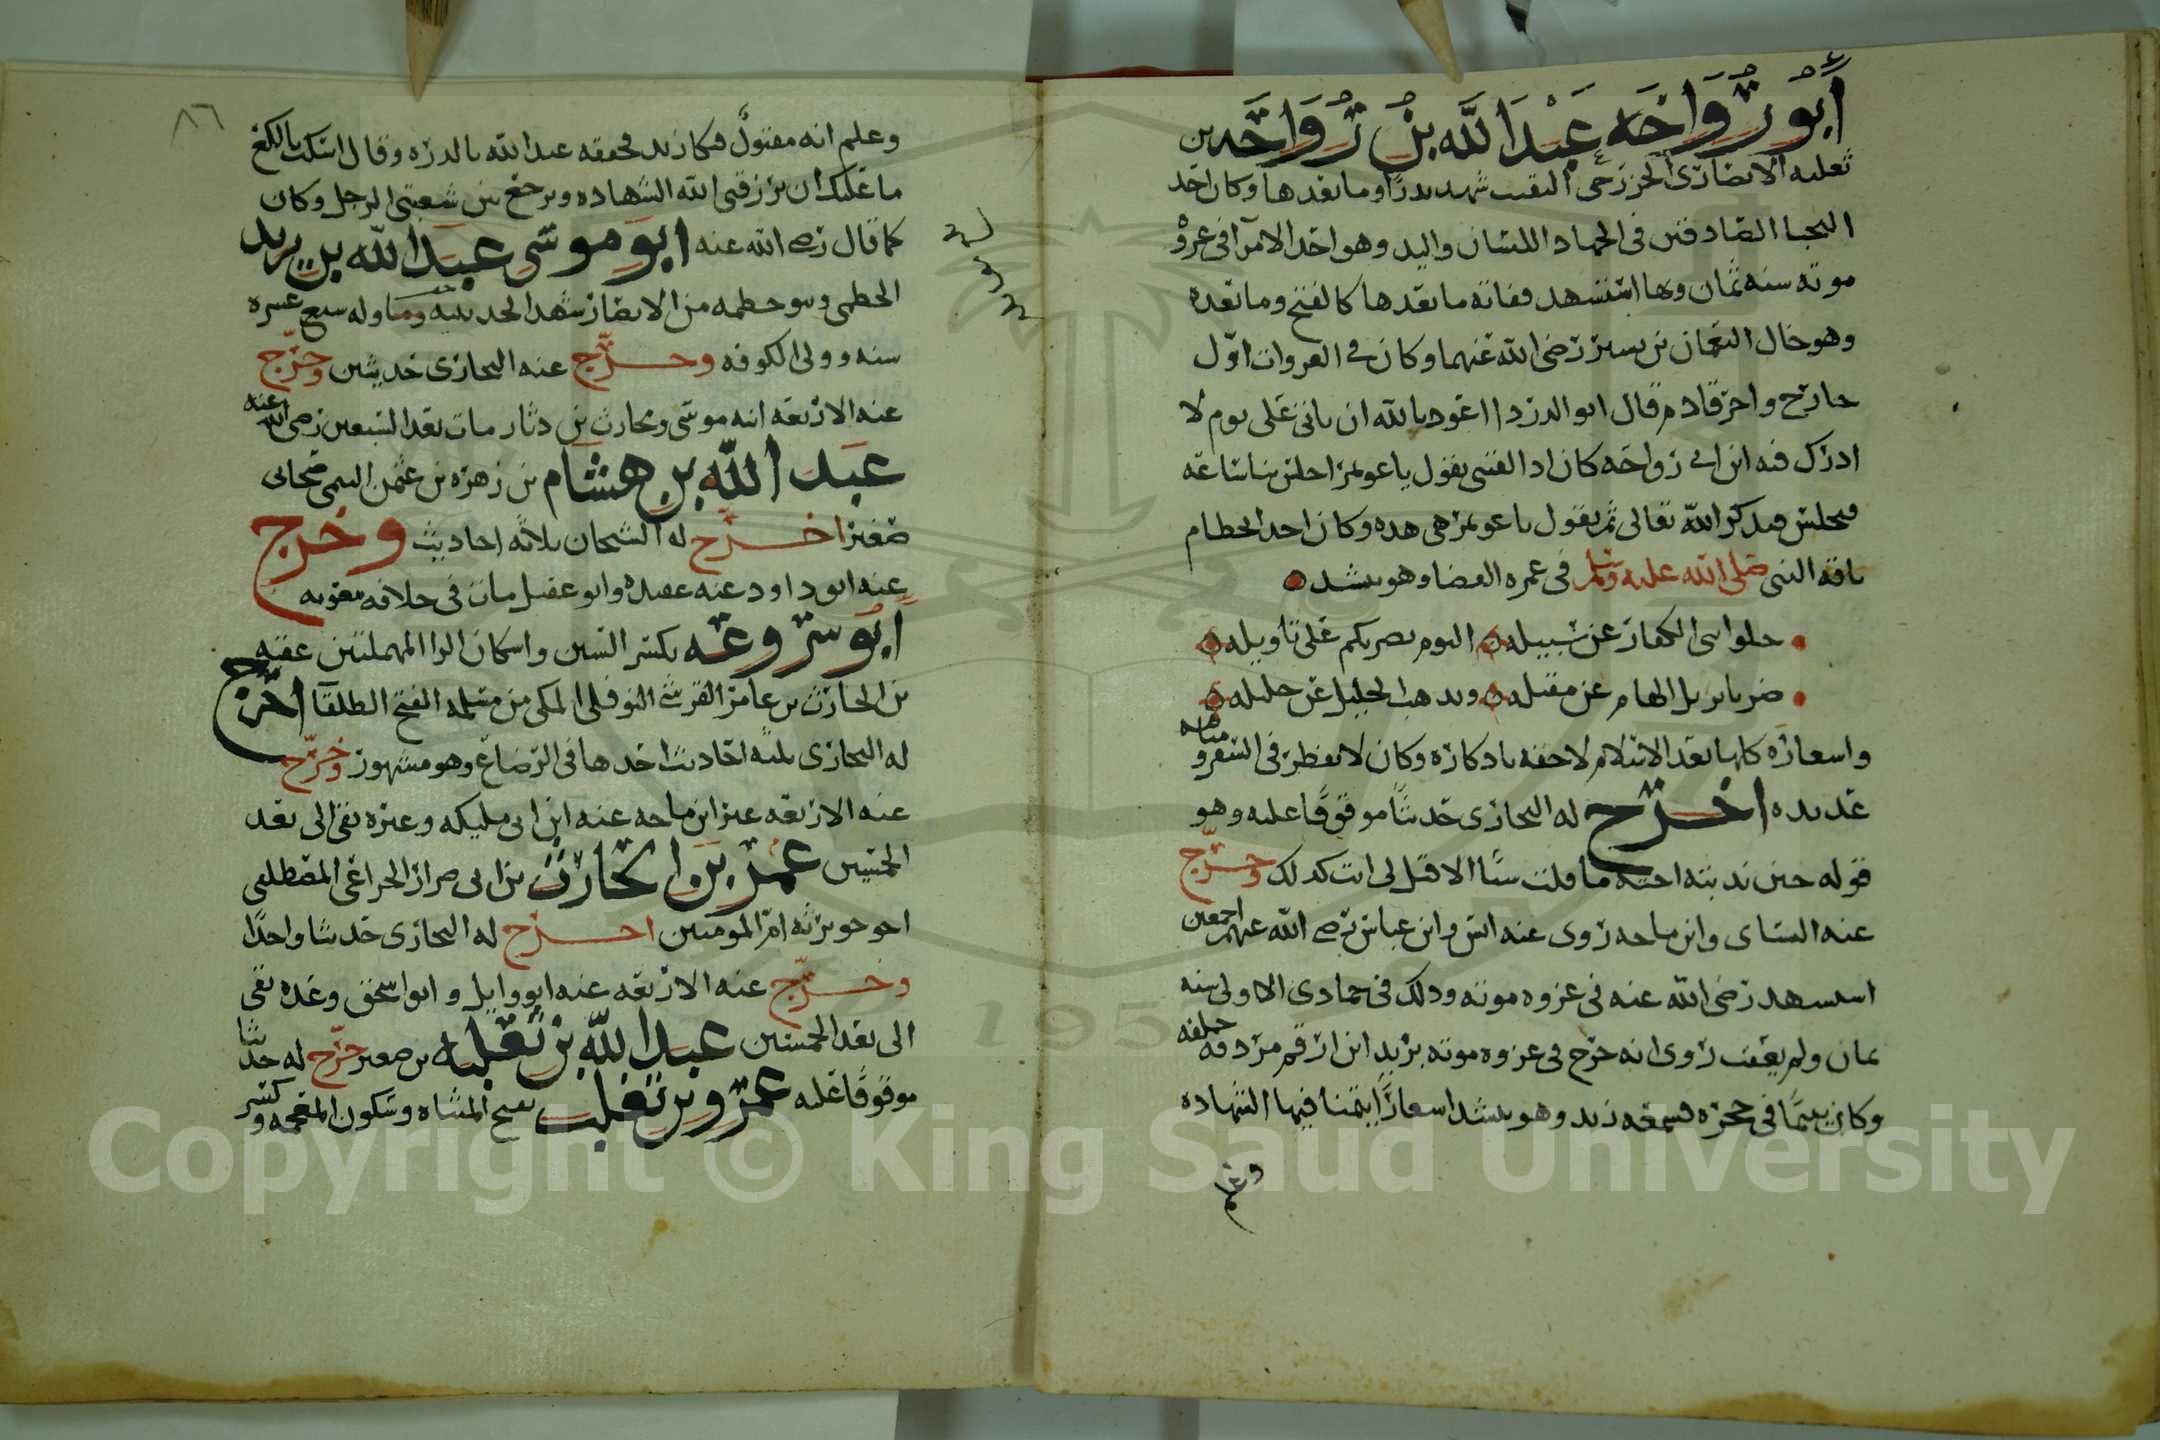 أبو رواحه عبد الله بن رواحه بن
ثعلبه الانصاري الخزرجي النقيب شهد بدرًا وما بعدها وكان احد
النجبا الصادقين في الجهاد اللسان واليد وهو احد الامرا في غزوة
موته سنه ثمان وبها استشهد ففاته ما بعدها كالفتح وما بعده
وهو خال النعمان بن بشير رضي الله عنهما وكان في الغزوات اوّل
خارج واخر قادم قال ابو الدرداا اعوذ بالله ان ياتي علي يوم لا
اذكر فيه ابن ابي رواحه كان اذا لقيني يقول يا عويمر اجلس بنا ساعه
فنجلس فيذكر الله تعالى ثم يقول يا عويمر هي هذه وكان احد الخطام
ناقه النبي صلى الله عليه وسلم في عمره القضا وهو ينشد
خلوا بني الكفار عن سبيله اليوم نضربكم على تاويله
ضربا يزيل الهام عن مقيله ويذهب الخليل عن خليله
واسعاره كلها بعد الاسلام لا حقه باذكاره وكان لا يفطر في السفر و
اخرج له البخاري حديثًا موقوفًا عليه وهو
قوله حين ندبته اخته ما قلت شيًا الا قيل لي انت كذلك وخرّج
عنه النساي وابن ماجه روى عنه انس وابن عباس رضي الله عنهم اجمعين
استشهد رضي الله عنه في غزوه موته وذلك في جمادى الاولى سنه
ثمان ولم يعقب روى انه خرج في غزوه موته بزيد ابن ارقم مردفه خلفه
وكان يتيمًا في حجره فسمعه زيد وهو ينشد اسعارًا يتمنا فيها الشهاده
وعلم
٨٦
وعلم انه مقتولٌ فبكا زيد فخفقه عبد الله بالدره وقال اسكت يا لكع
ما عليك ان يرزقني الله الشهاده وترجع بين شعبتي الرحل وكان
كما قال رضي الله عنه ابو موسى عبد الله بن يزيد
الخطمي وبنو خطمه من الانصار شهد الحديبيه وله سبع عشره
سنه وولي الكوفه وخرّج عنه البخاري حديثين وخرّج
عنه الاربعه ابنه موسى ومحارب بن دثار مات بعد السبعين رضي الله عنه
عبد الله بن هشام بن زهره بن عثمن التيمي صحابي
صغير اخرج له الشيخان ثلاثه احاديث وخرج
عنه ابو داود عنه حفيده ابو عقيل مات في خلافه معويه
أبو سروعه بكسر السين واسكان الرا المهملتين عقبه
بن الحارث بن عامر القرشي النوفلي المكي من مسلمه الفتح الطلقا اخرج
له البخاري ثلثه احاديث احدها في الرضاع وهو مشهور وخرّج
عنه الاربعه غير ابن ماجه عنه ابن ابي مليكه وغيره بقي الى بعد
الخمسين عمرو بن الحارث بن ابي ضرار الخزاعي المصطلقي
اخو جويريه ام المومنين اخرج له البخاري حديثا واحدًا
وخرّج عنه الاربعه عنه ابو وايل وابو اسحق وعده بقي
الى بعد الخمسين عبد الله بن ثعلبه بن صعير خرّج له حديثا
موقوفًا عليه عمرو بن تغلب بفتح المثناه وسكون المعجمه وكسر
Copyright © King Saud University